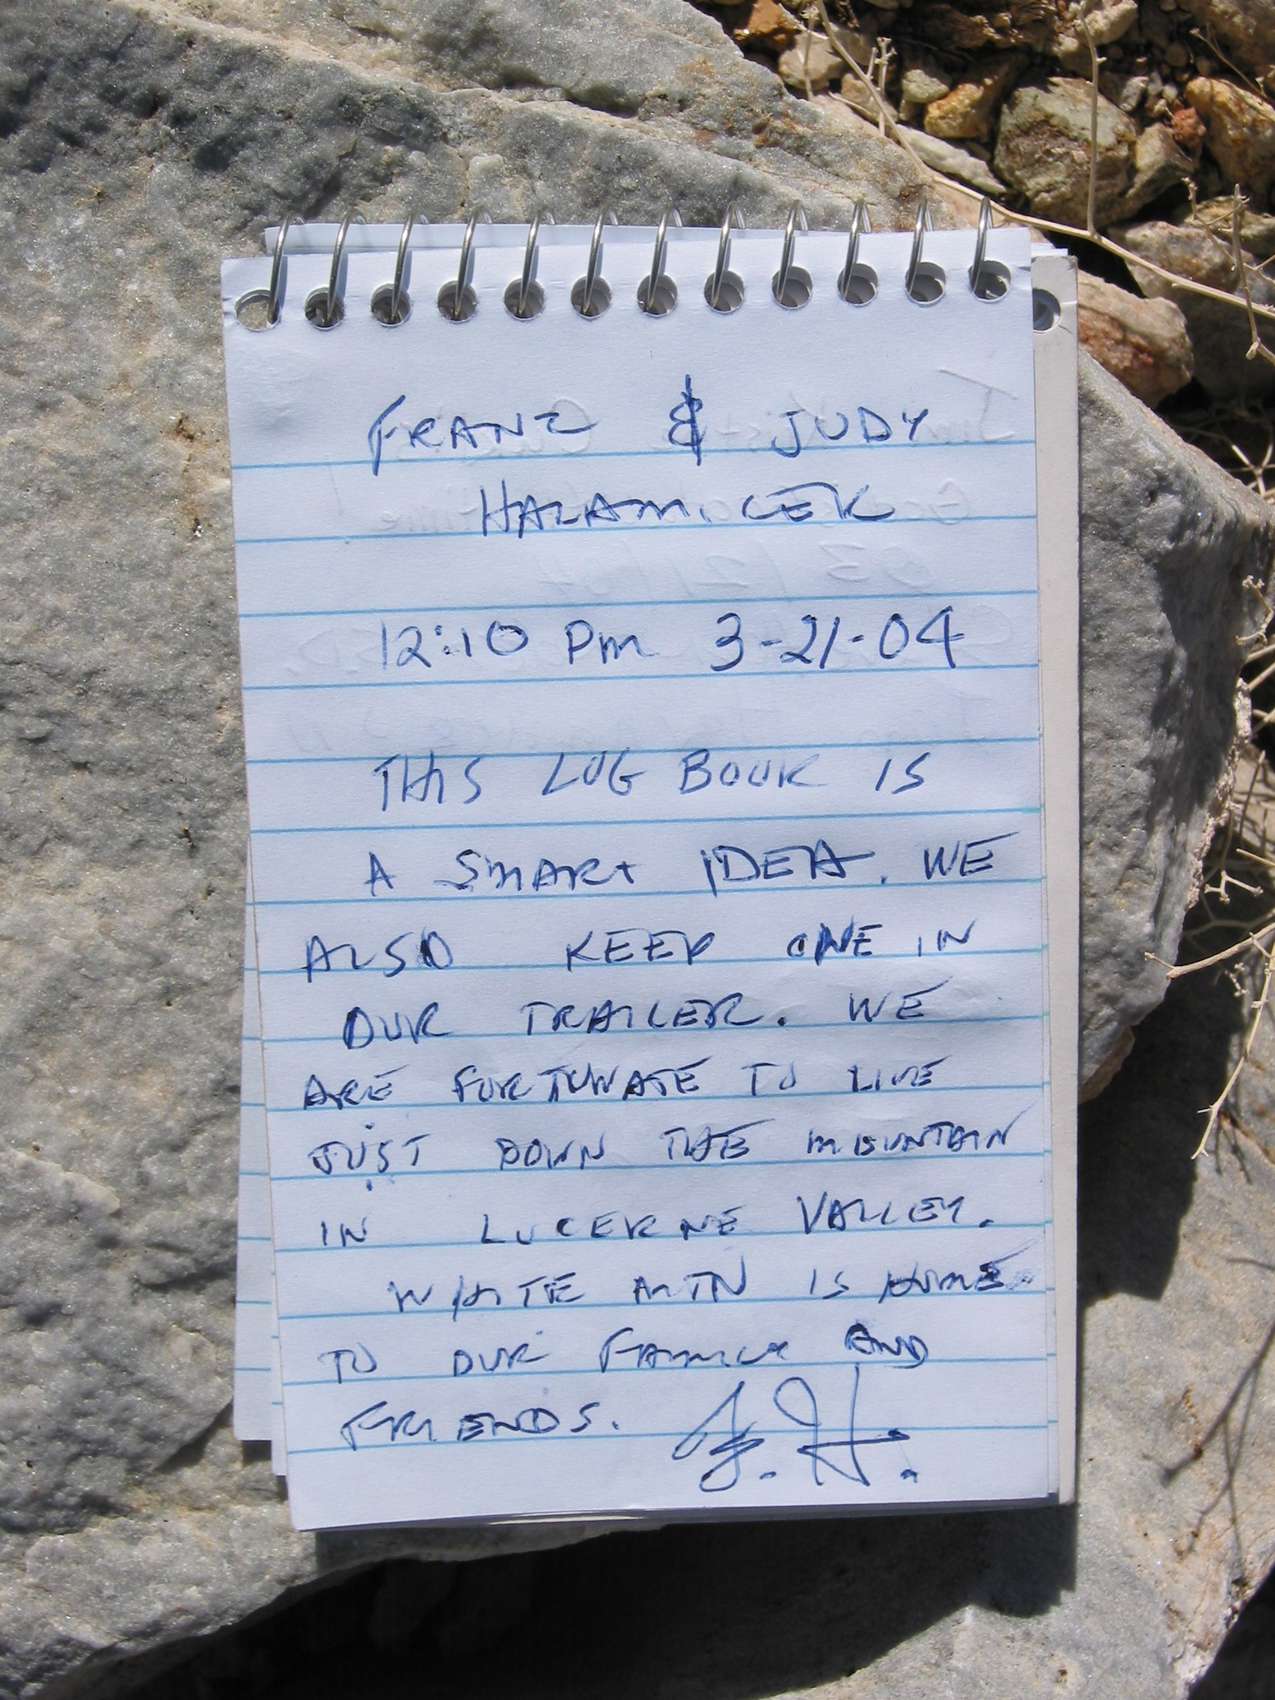 FRANZ & JUDY
HALAMICEK
12:10 Pm 3-21-04
THIS LOG BOOK IS
A SMART IDEA. WE
ALSO KEEP ONE IN
OUR TRAILER. WE
ARE FORTUNATE TO LIVE
JUST DOWN THE MOUNTAIN
IN LUCERNE VALLEY.
WHITE MTN IS HOME
TO OUR FAMILY AND
FRIENDS. J.H.